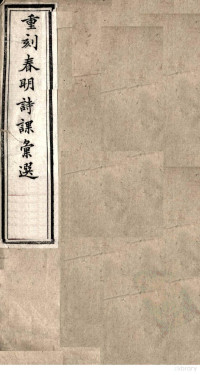 重刻春明詩課彙選